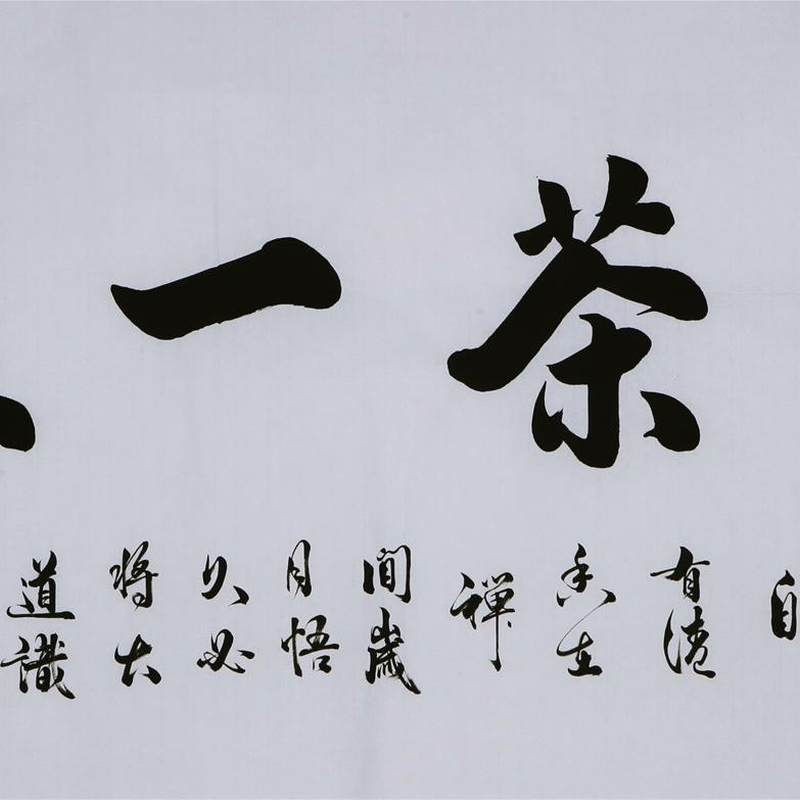 茶一
自
有清
香在
禅
間歲
月悟
久必
將大
道識